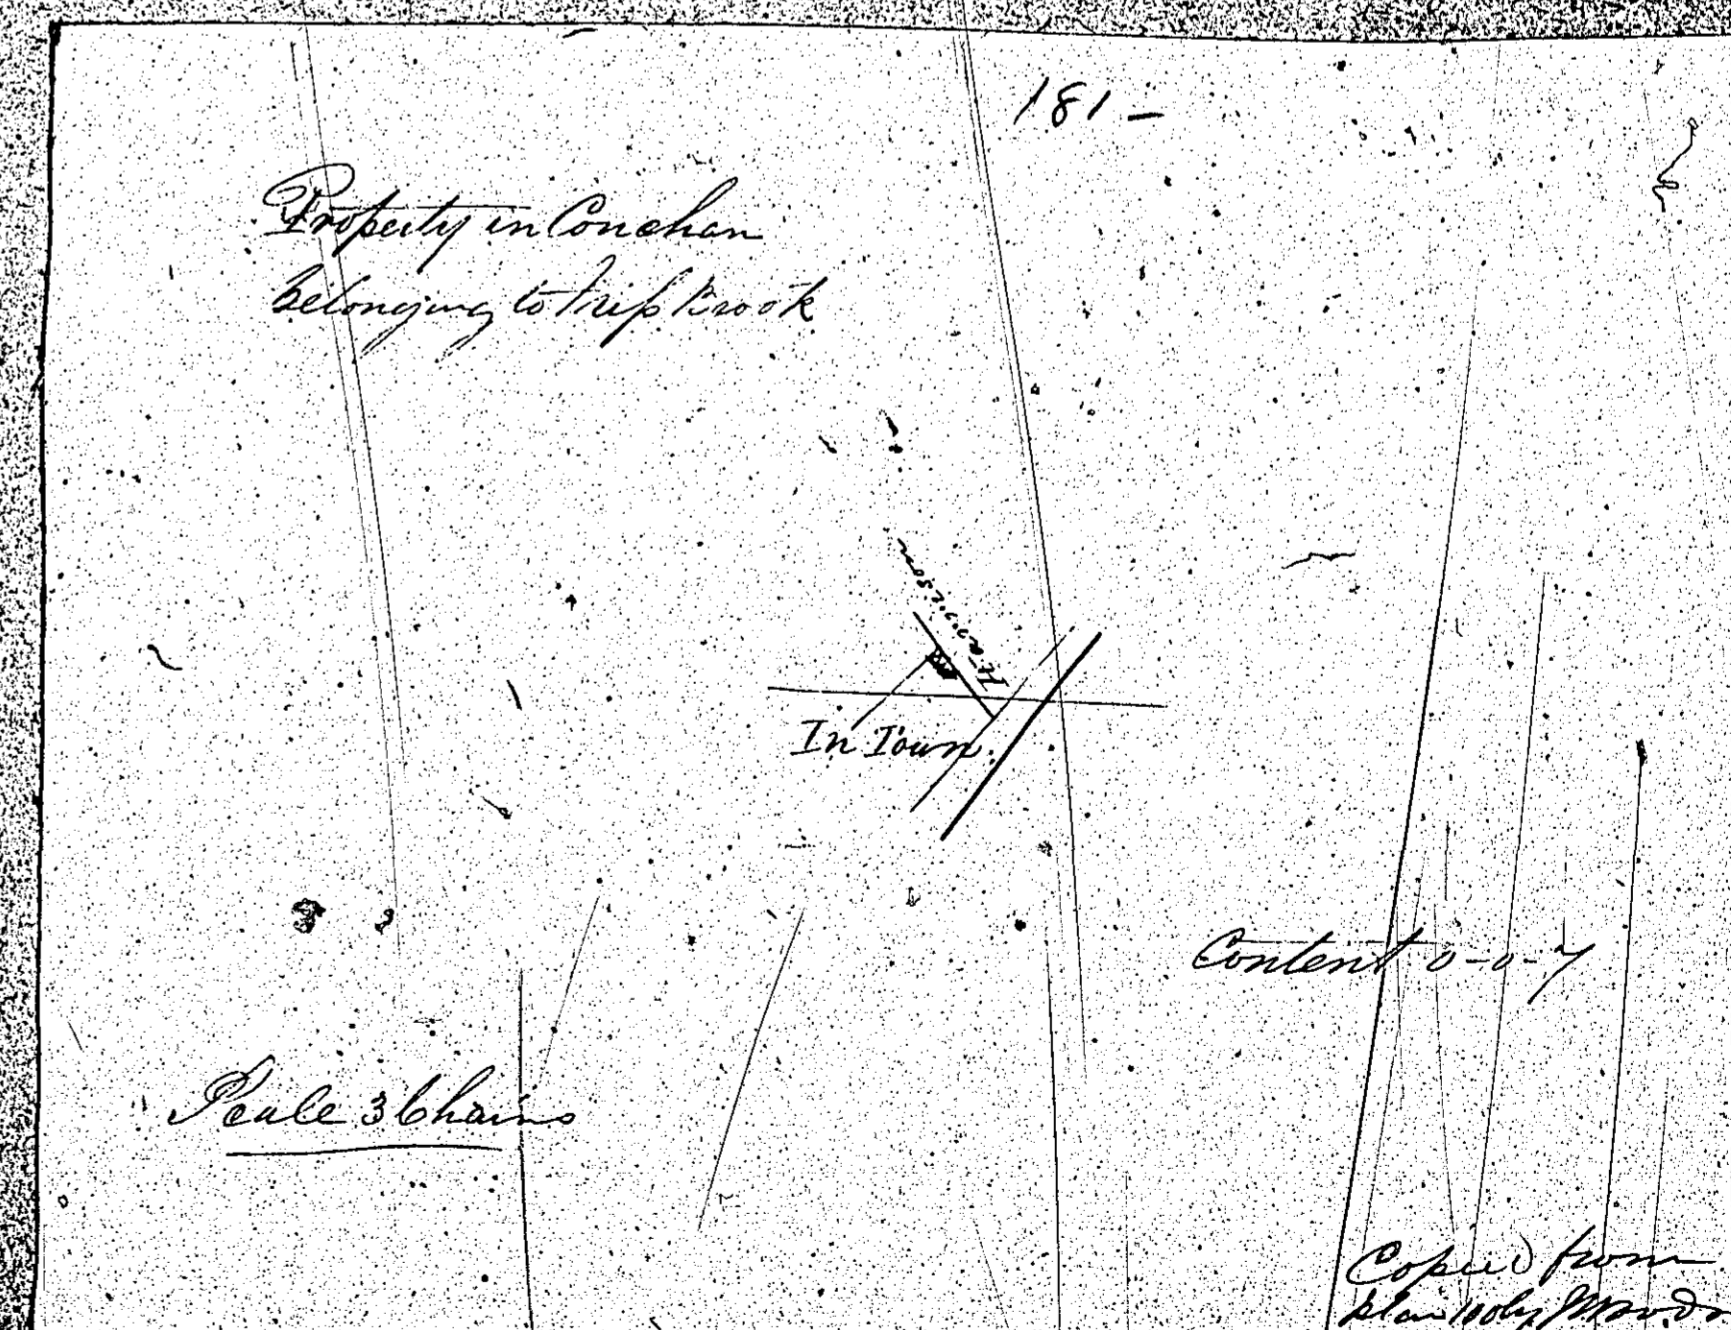 181 -
Property in Conchan
belonging to Brook
Harrison
In Town.
Content 0-0-7
Scale 3 Chains
Copied from
plan by